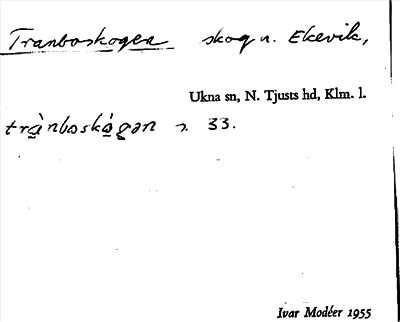 Tranboskogen skog n. Ekevik,
Ukna sn, N. Tjusts hd, Klm. l.
trànboskógən 33.
Ivar Modéer 1955